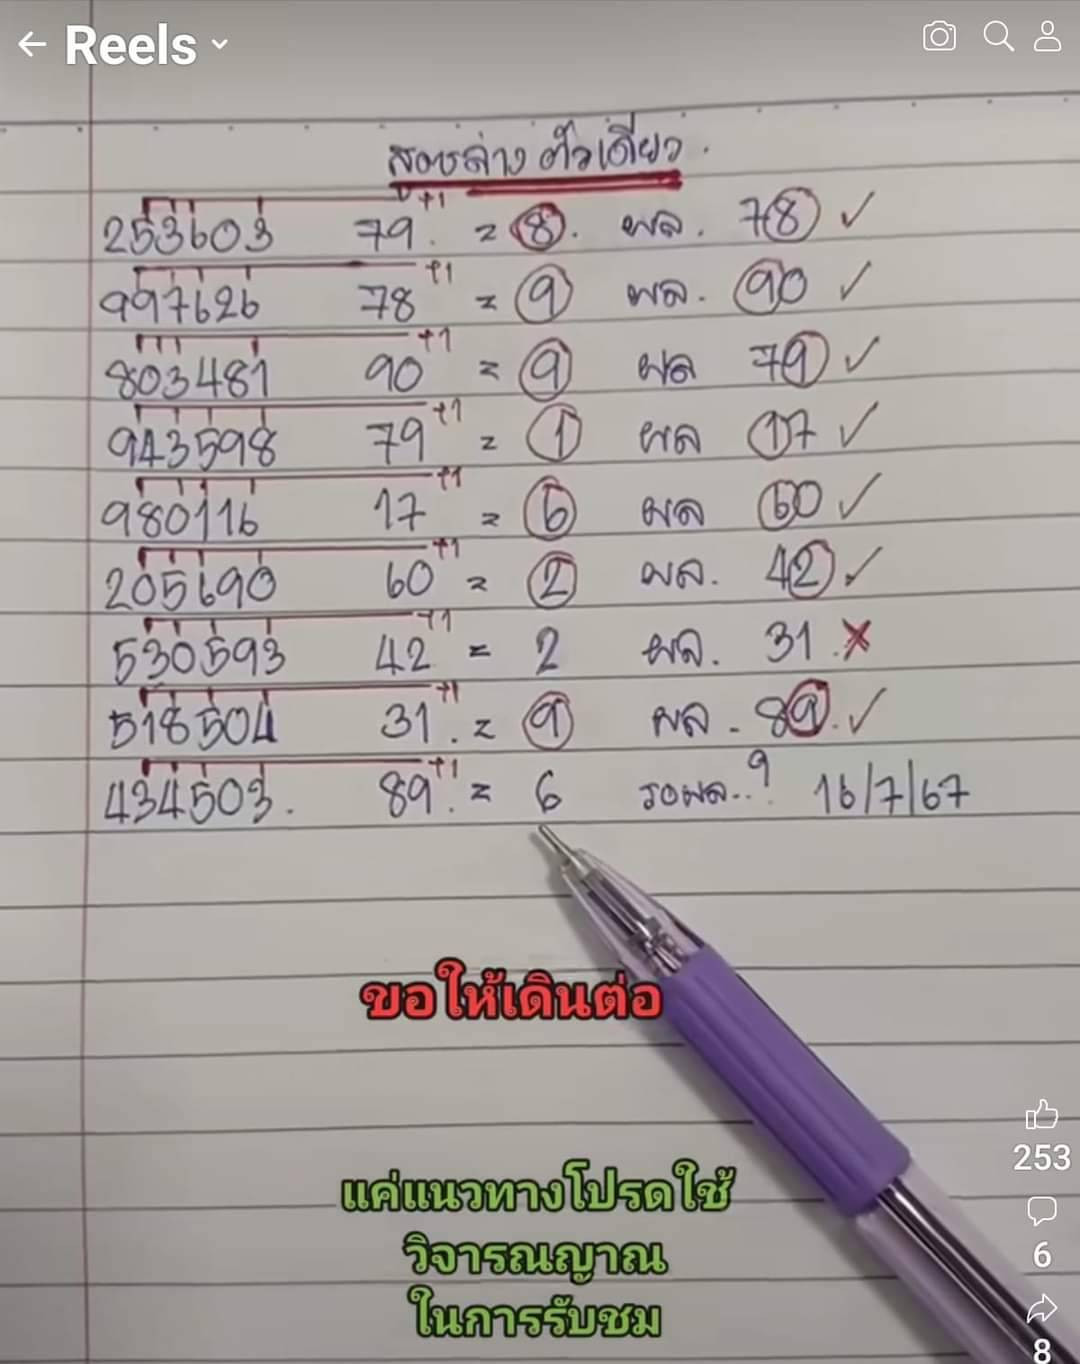 Reels
สองล่าง ตัวเดียว.
253603 79. +1 = 8. ผล. 78 ✓
997626 78 +1 = 9 ผล. 90 ✓
803481 90 +1 = 9 ผล 79 ✓
943598 79 +1 = 1 ผล 17 ✓
980116 17 +1 = 6 ผล 60 ✓
205690 60 +1 = 2 ผล. 42 ✓
530593 42 +1 = 2 ผล. 31 ✗
518504 31. +1 = 9 ผล. 89. ✓
434503. 89. +1 = 6 รอผล..? 16/7/67
ขอให้เดินต่อ
แค่แนวทางโปรดใช้
วิจารณญาณ
ในการรับชม
253
6
8